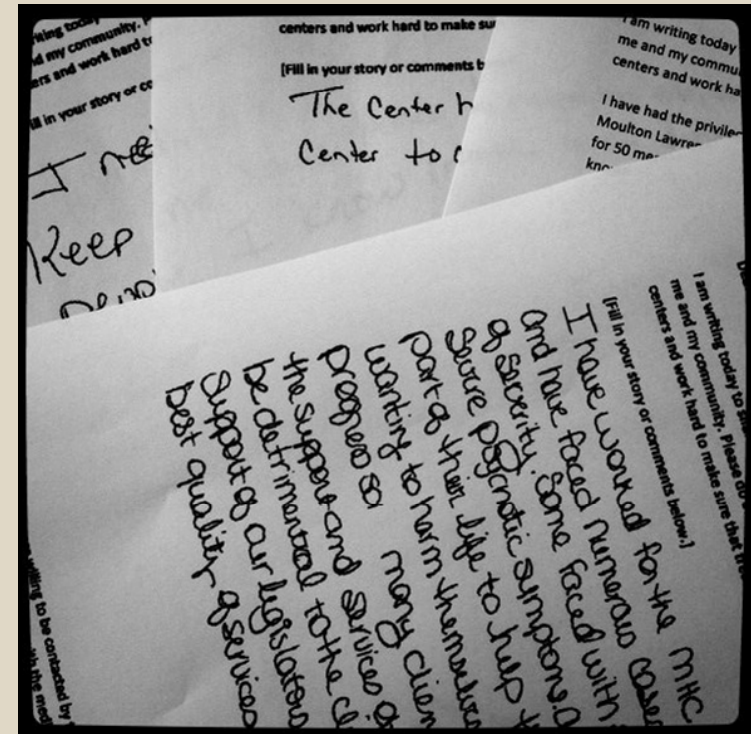 riting today
d my community. P
ers and work hard to
ill in your story or co
I nee
Keep
centers and work hard to make su
[Fill in your story or comments b
The Center h
Center to
I am writing today
me and my commu
centers and work ha
I have had the privile
Moulton Lawre
for 50 me
kno
I am writing today to s
me and my community. Please do
centers and work hard to make sure that
[Fill in your story or comments below.]
I have worked for the MHC
and have faced numerous cases
of severity. Some faced with
severe psycnotic symptoms.
part of their life to help
wanting to harm themselves
progress so many clien
the support and services
be detrimental to the cl
Support of our legislators
best quality of services
willing to be contacted by
with the med